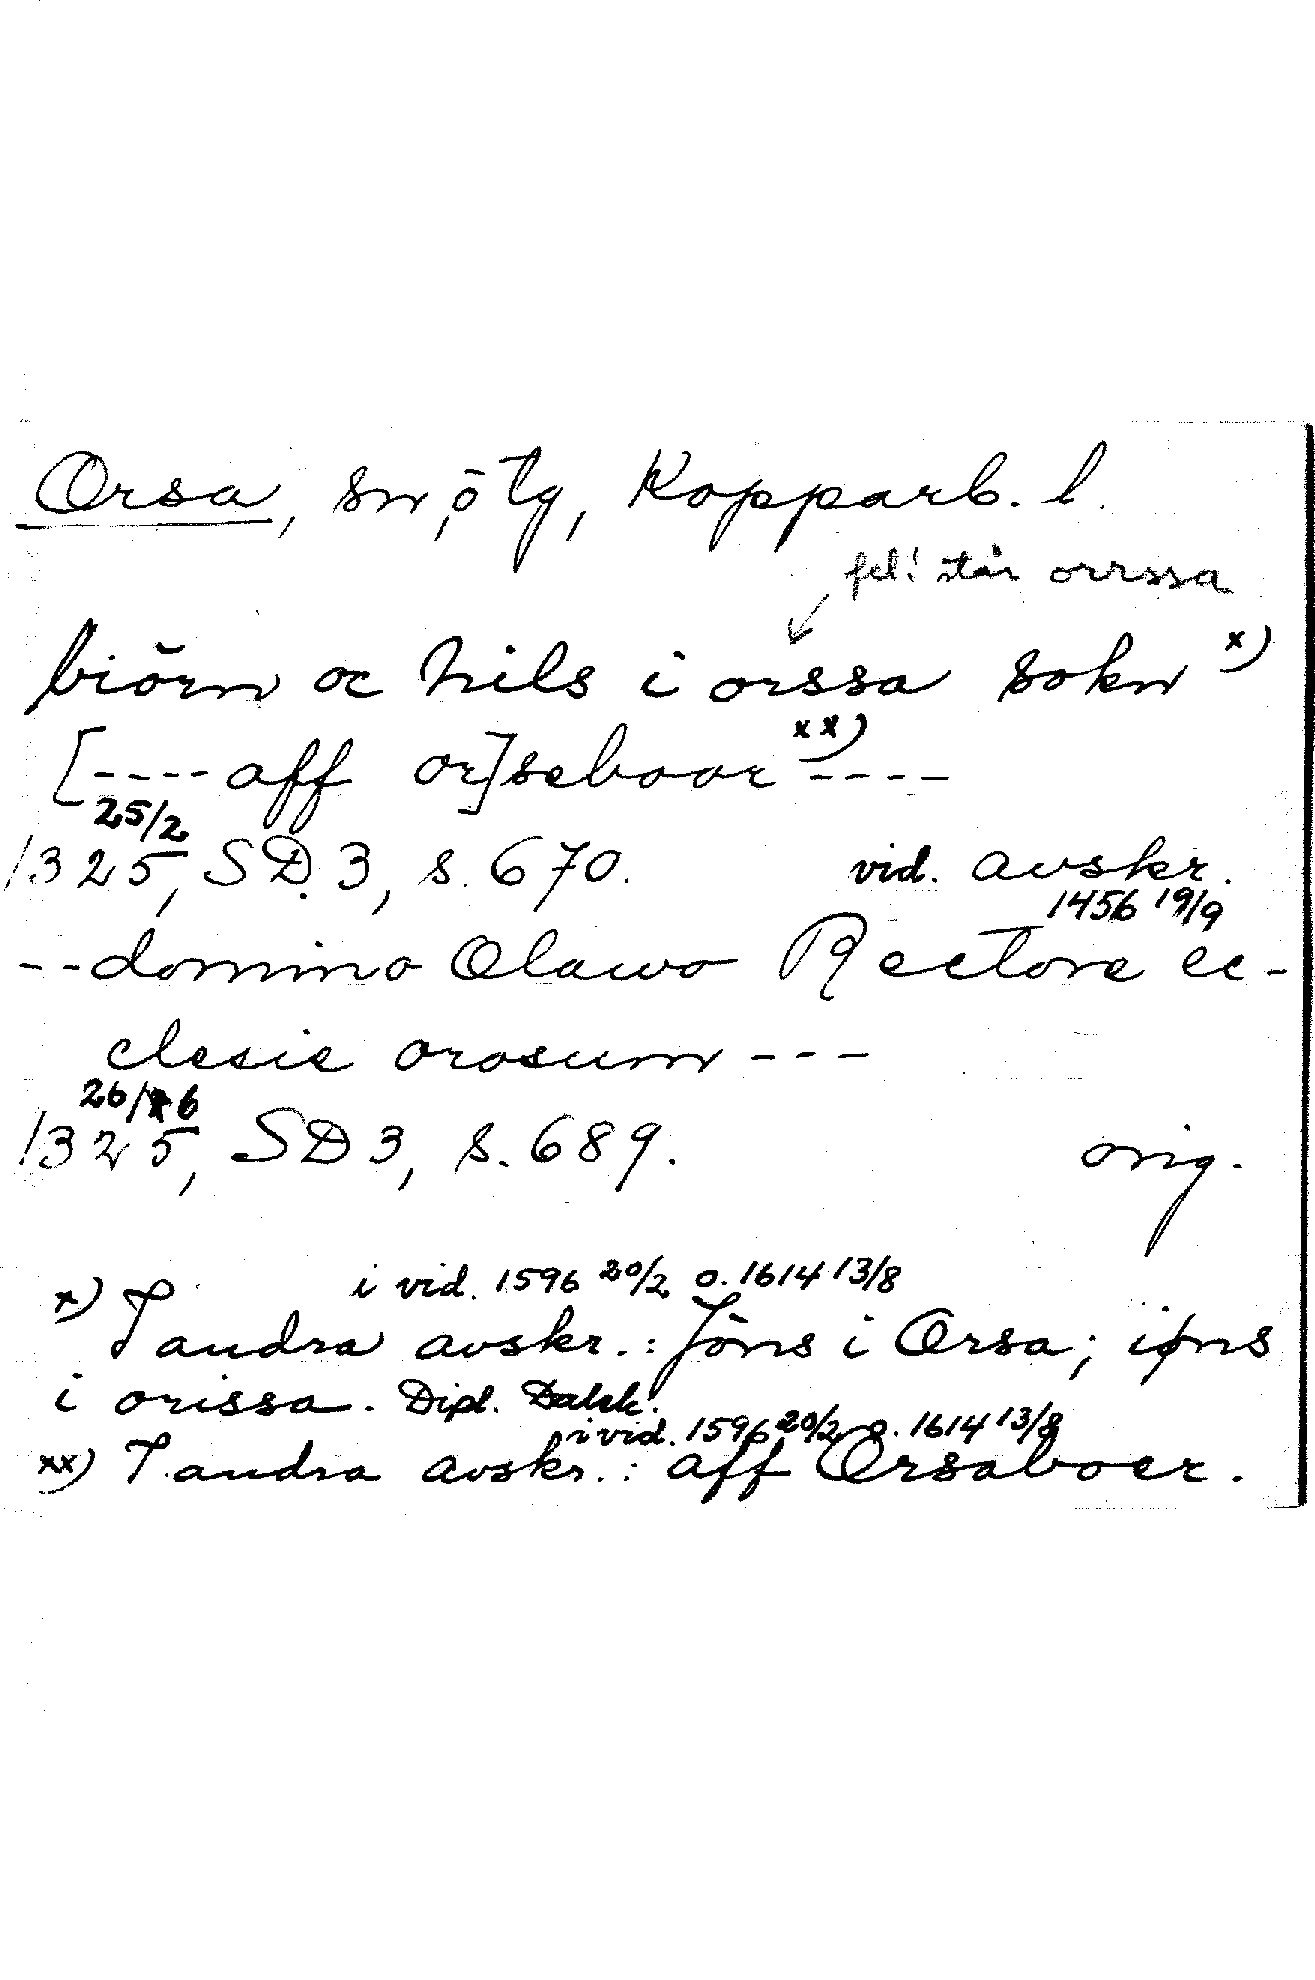 Orsa, sn, ö tg, Kopparb. l.
fel! står orrssa
biörn oc nils i orssa sokn x)
[---- aff or]seboar xx) ----
25/2
1325, SD 3, s. 670. vid. avskr.
1456 19/9
-- domino Olawo Rectore ec-
clesie orosum ---
26/6
1325, SD 3, s. 689. orig.
i vid. 1596 20/2 o. 1614 13/8
x) I andra avskr.: Jöns i Orsa; iøns
i orissa. Dipl. Dalek.
i vid. 1596 20/2 o. 1614 13/8
xx) I andra avskr.: aff Orsaboer.